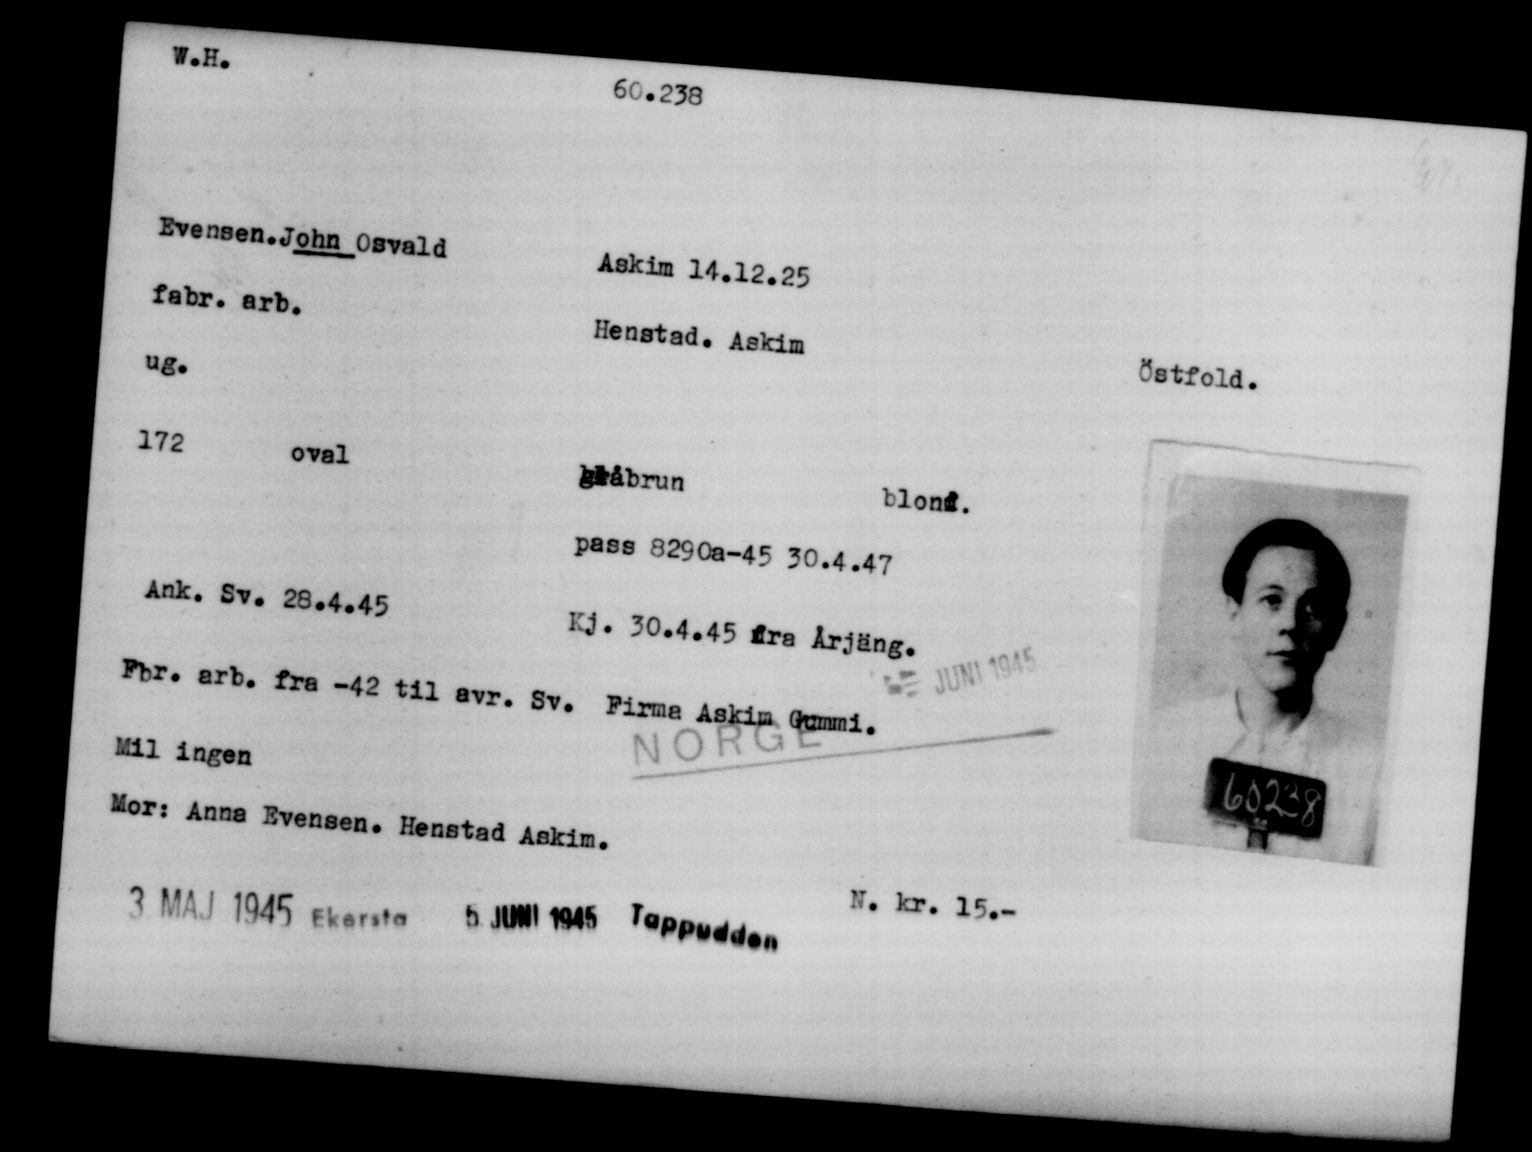 W.H.
60.238
Evensen.John Osvald
Askim 14.12.25
fabr. arb.
Henstad. Askim
Östfold.
ug.
172 oval gråbrun blond.
pass 8290a-45 30.4.47
Ank. Sv. 28.4.45
Kj. 30.4.45 fra Årjäng.
JUNI 1945
Fbr. arb. fra -42 til avr. Sv. Firma Askim Gummi.
NORGE
Mil ingen
Mor: Anna Evensen. Henstad Askim.
60238
N. kr. 15.-
3 MAJ 1945 Ekersta 5 JUNI 1945 Tappudden